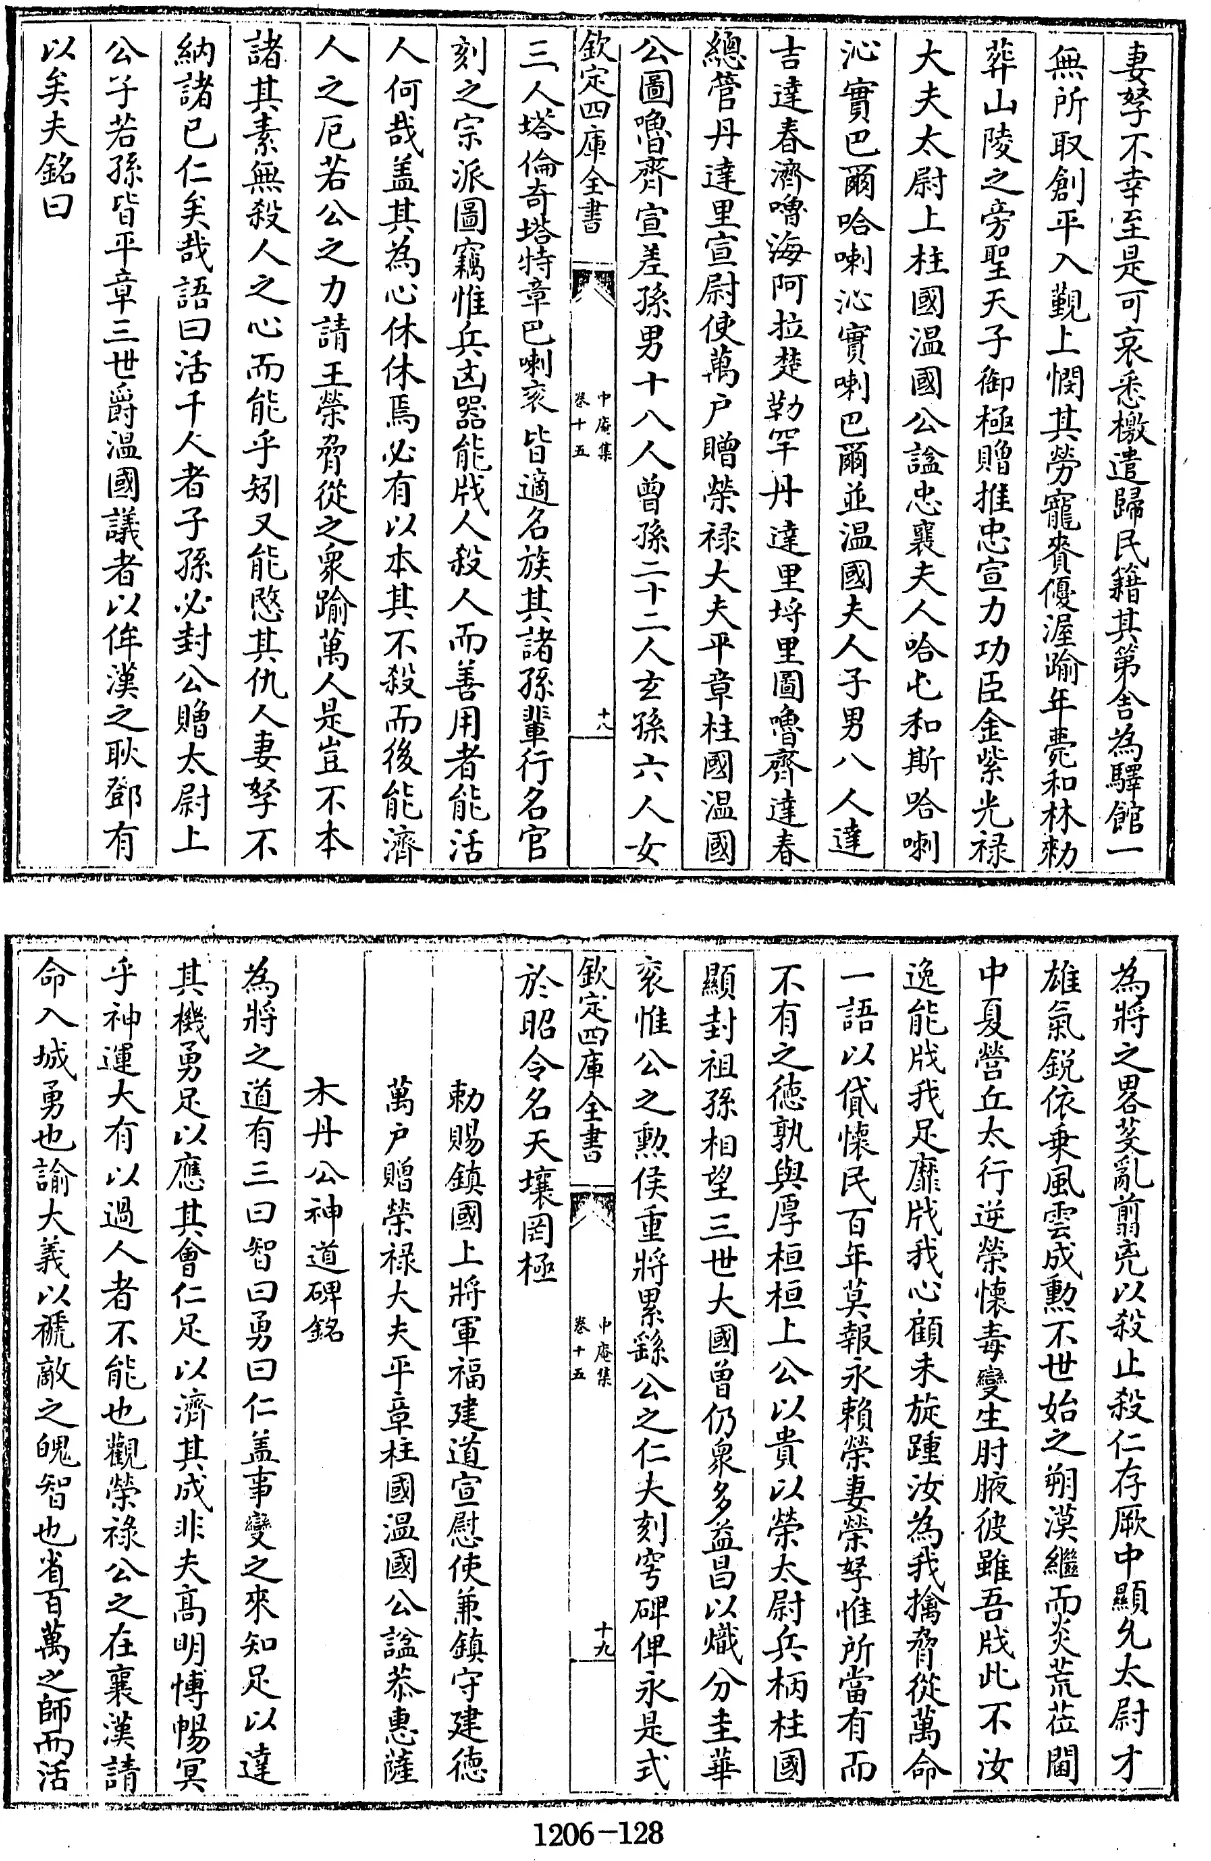 妻孥不幸至是可哀悉檄遣歸民籍其第舍為驛館一
無所取創平入覲上憫其勞寵賚優渥踰年薨和林勑
葬山陵之旁聖天子御極贈推忠宣力功臣金紫光禄
大夫太尉上柱國温國公諡忠襄夫人哈屯和斯哈喇
沁實巴爾哈喇沁實喇巴爾並温國夫人子男八人達
吉達春濟嚕海阿拉楚勒罕丹達里埒里圖嚕齊達春
總管丹達里宣尉使萬户贈榮禄大夫平章柱國温國
公圖嚕齊宣差孫男十八人曾孫二十二人玄孫六人女
欽定四庫全書
中庵集
卷十五
十八
三人塔倫奇塔特章巴喇衮皆適名族其諸孫輩行名官
刻之宗派圖竊惟兵凶器能戕人殺人而善用者能活
人何哉盖其為心休休焉必有以本其不殺而後能濟
人之厄若公之力請王榮脅從之衆踰萬人是豈不本
諸其素無殺人之心而能乎矧又能愍其仇人妻孥不
納諸已仁矣哉語曰活千人者子孫必封公贈太尉上
公子若孫皆平章三世爵温國議者以侔漢之耿鄧有
以矣夫銘曰
為將之畧芟亂翦兇以殺止殺仁存厥中顯允太尉才
雄氣鋭依乗風雲成勲不世始之朔漠繼而炎荒莅閫
中夏營丘太行逆榮懷毒變生肘腋彼雖吾戕此不汝
逸能戕我足靡戕我心顧未旋踵汝為我擒脅從萬命
一語以貸懷民百年莫報永賴榮妻榮孥惟所當有而
不有之徳孰與厚桓桓上公以貴以榮太尉兵柄柱國
顯封祖孫相望三世大國曾仍衆多益昌以熾分圭華
衮惟公之勲侯重將累繇公之仁夫刻穹碑俾永是式
欽定四庫全書
中庵集
卷十五
十九
於昭令名天壤罔極
勑賜鎮國上將軍福建道宣慰使兼鎮守建徳
萬户贈榮禄大夫平章柱國温國公諡恭惠薩
木丹公神道碑銘
為將之道有三曰智曰勇曰仁盖事變之來知足以達
其機勇足以應其會仁足以濟其成非夫高明博暢冥
乎神運大有以過人者不能也觀榮禄公之在襄漢請
命入城勇也諭大義以褫敵之魄智也省百萬之師而活
1206-128